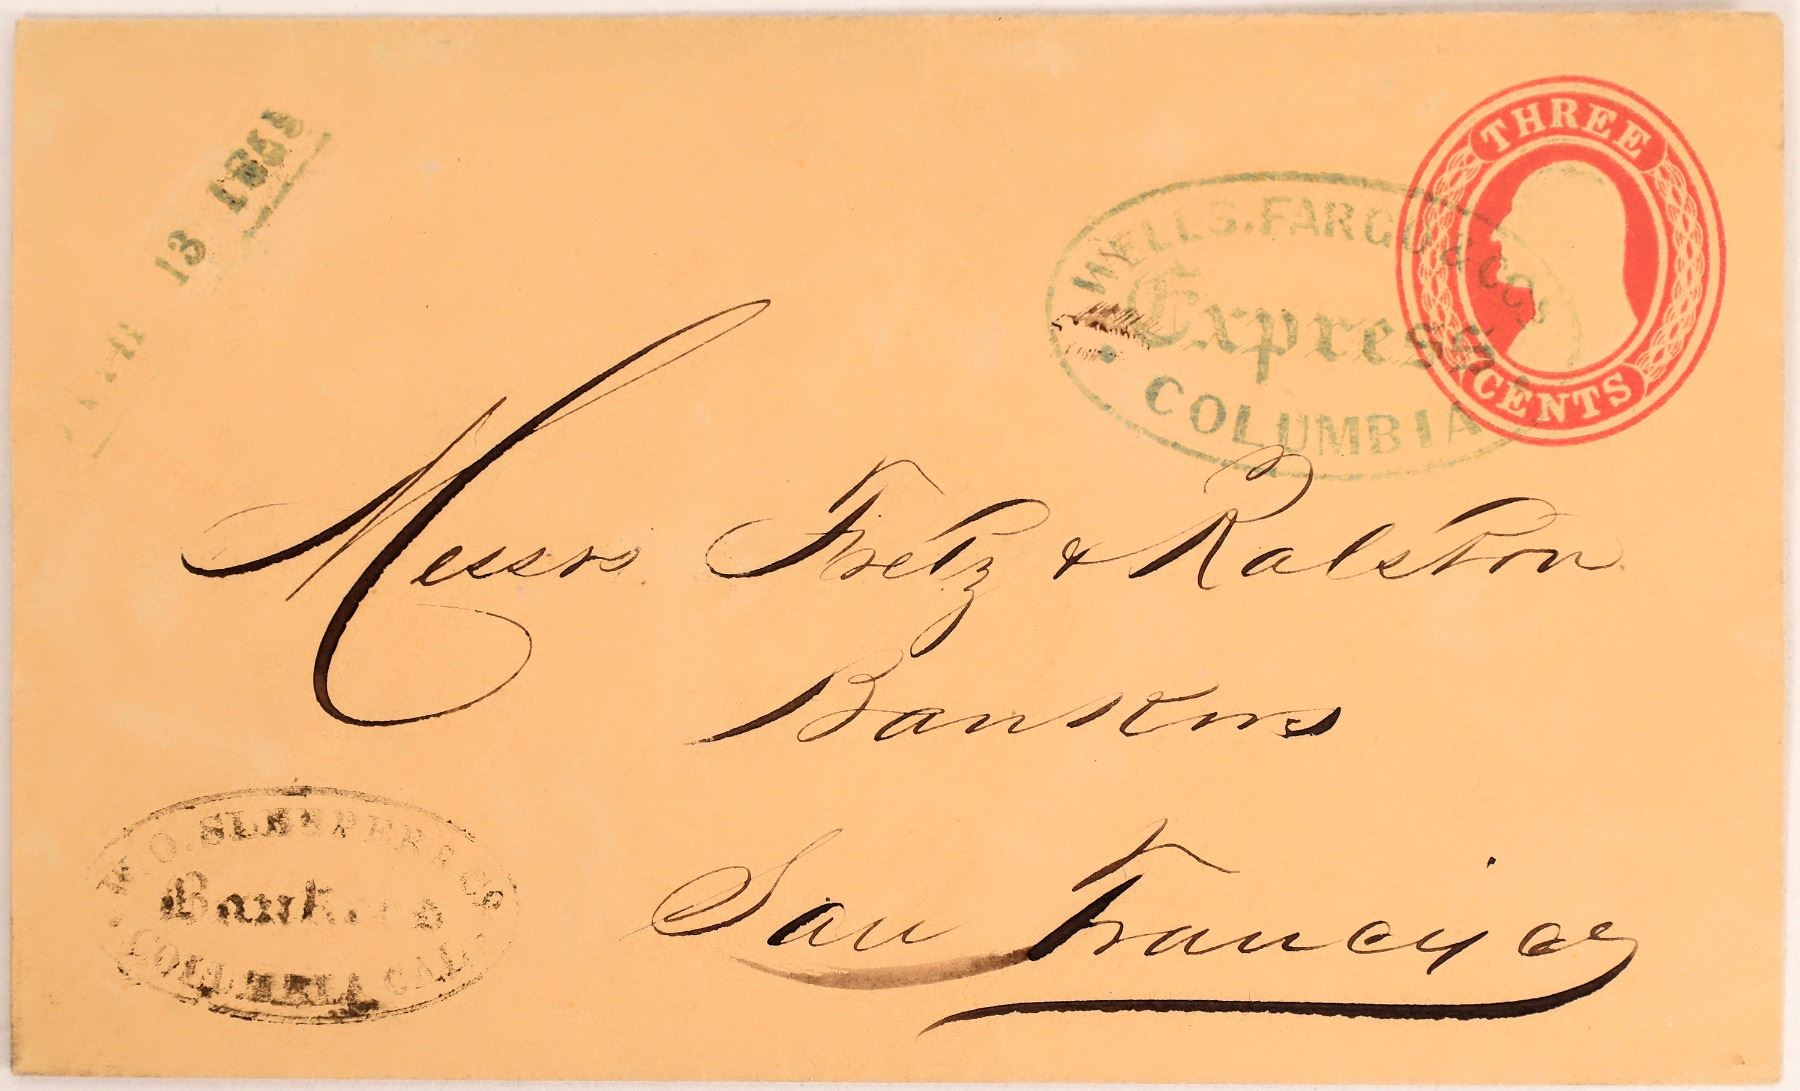 13 185
THREE
CENTS
WELLS. FARGO & COS
Express
COLUMBIA
Messrs Fretz & Ralston
Bankers
San Francisco
W. O. SLEEPER & CO
Bankers
COLUMBIA CAL.